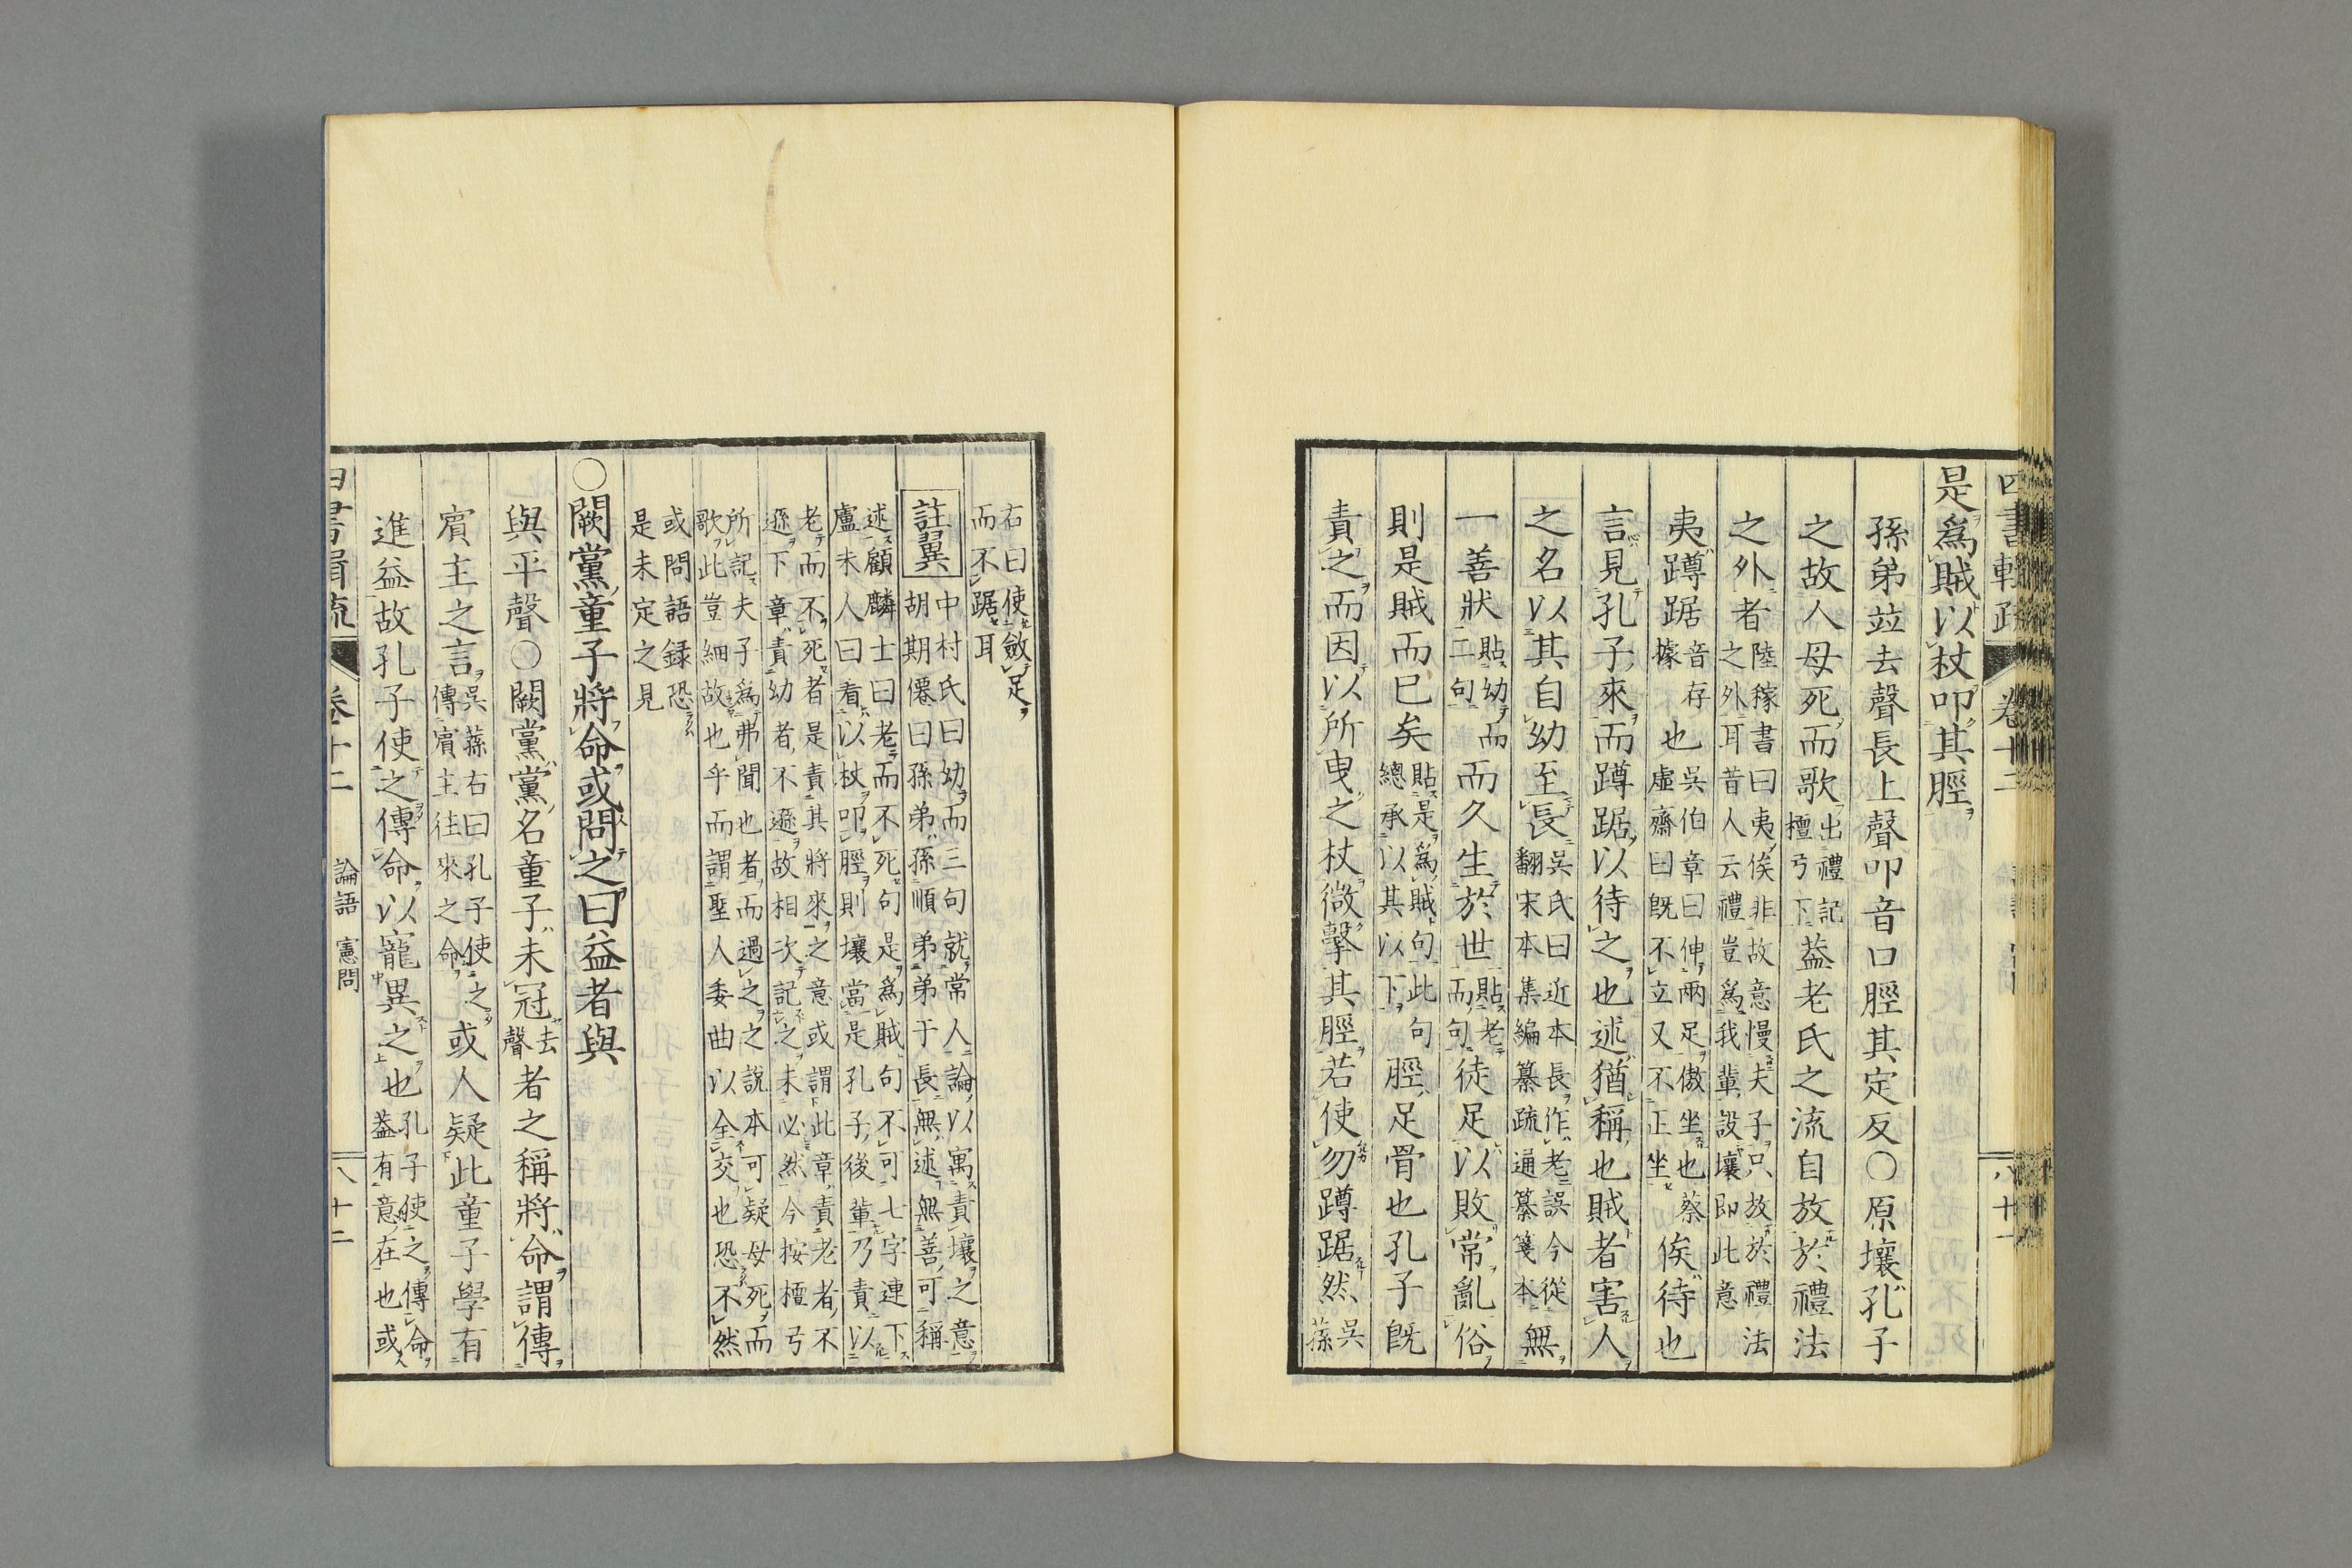 四書輯疏 卷十二 八十一
是爲賊以杖叩其脛
孫弟竝去聲長上聲叩音口脛其定反○原壤孔子
之故人母死而歌出禮記檀弓下葢老氏之流自放於禮法
之外者陸稼書曰夷俟非故意慢夫子只放於禮法之外耳昔人云禮豈爲我輩設壤即此意
夷蹲踞音存據也吳伯章曰伸兩足傲坐也蔡虛齋曰旣不立又不正坐俟待也
言見孔子來而蹲踞以待之也述猶稱也賊者害人
之名以其自幼至長吳氏曰近本長作老誤今從翻宋本集編纂疏通纂箋本無
一善狀貼幼而二句而久生於世貼老而句徒足以敗常亂俗
則是賊而已矣貼是爲賊句此句總承以其以下脛足骨也孔子旣
責之而因以所曳之杖微擊其脛若使勿蹲踞然吳蓀
右曰使斂足而不踞耳
註翼中村氏曰幼而三句就常人論以寓責壤之意胡期僊曰孫弟孫順弟弟于長無述無善可稱
述顧麟士曰老而不死句是爲賊句不可七字連下盧未人曰看以杖叩脛則壤當是孔子後輩乃責以
老而不死者是責其將來之意或謂此章責老者不遜下章責幼者不遜故相次記之未必然今按檀弓
所記夫子爲弗聞也者而過之之說本可疑母死而歌此豈細故也乎而謂聖人委曲以全交也恐不然
或問語錄恐是未定之見
○闕黨童子將命或問之曰益者與
與平聲○闕黨黨名童子未冠去聲者之稱將命謂傳
賓主之言吳蓀右曰孔子使之傳賓主往來之命或人疑此童子學有
進益故孔子使之傳命以寵異之也孔子使之傳命葢有意在也或
四書輯疏 卷十二 論語 憲問 八十二